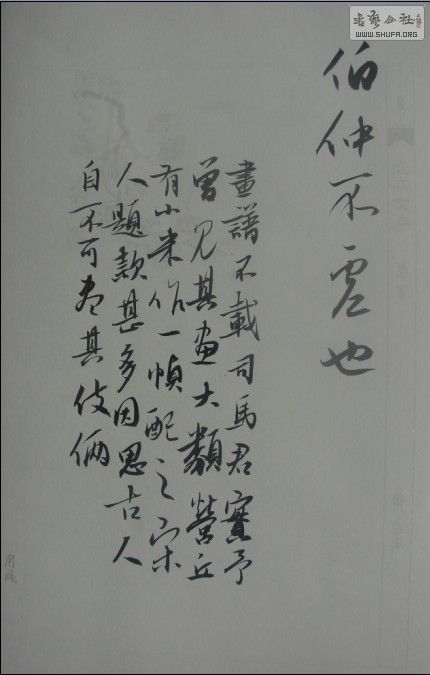 書藝公社
WWW.SHUFA.ORG
伯仲不虛也
畫譜不載司馬君實予
曾見其畫大類營丘
有小米作一幀配之宋
人題款甚多因思古人
自不可盡其伎倆